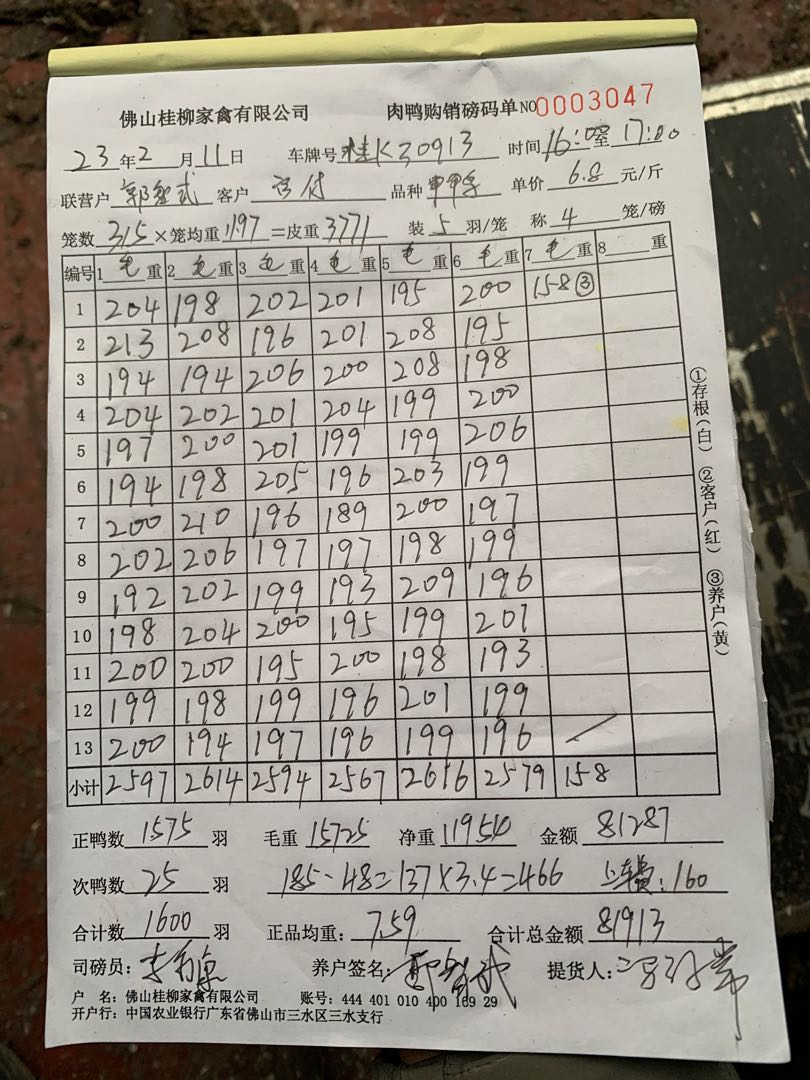 佛山桂柳家禽有限公司 肉鸭购销磅码单 NO0003047
23年2月11日 车牌号 桂K30913 时间 16:00至17:00
联营户 郭智武 客户 品种 单价 6.8 元/斤
笼数 315 × 笼均重 1197 = 皮重 3771 装 5 羽/笼 称 4 笼/磅
编号 1 毛 重 2 毛 重 3 毛 重 4 毛 重 5 毛 重 6 毛 重 7 毛 重 8 重
1 204 198 202 201 195 200 158③
2 213 208 196 201 208 195
3 194 194 206 200 208 198
4 204 202 201 204 199 200
5 197 200 201 199 199 206
6 194 198 205 196 203 199
7 200 210 196 189 200 197
8 202 206 197 197 198 199
9 192 202 199 193 209 196
10 198 204 200 195 199 201
11 200 200 195 200 198 193
12 199 198 199 196 201 199
13 200 194 197 196 199 196
小计 2597 2614 2594 2567 2616 2579 158
①存根(白) ②客户(红) ③养户(黄)
正鸭数 1575 羽 毛重 15725 净重 11954 金额 81287
次鸭数 25 羽 185-48=137×3.4=466 上车费:160
合计数 1600 羽 正品均重: 7.59 合计总金额 81913
司磅员: 养户签名: 郭智武 提货人:
户 名: 佛山桂柳家禽有限公司 账号: 444 401 010 400 169 29
开户行: 中国农业银行广东省佛山市三水区三水支行